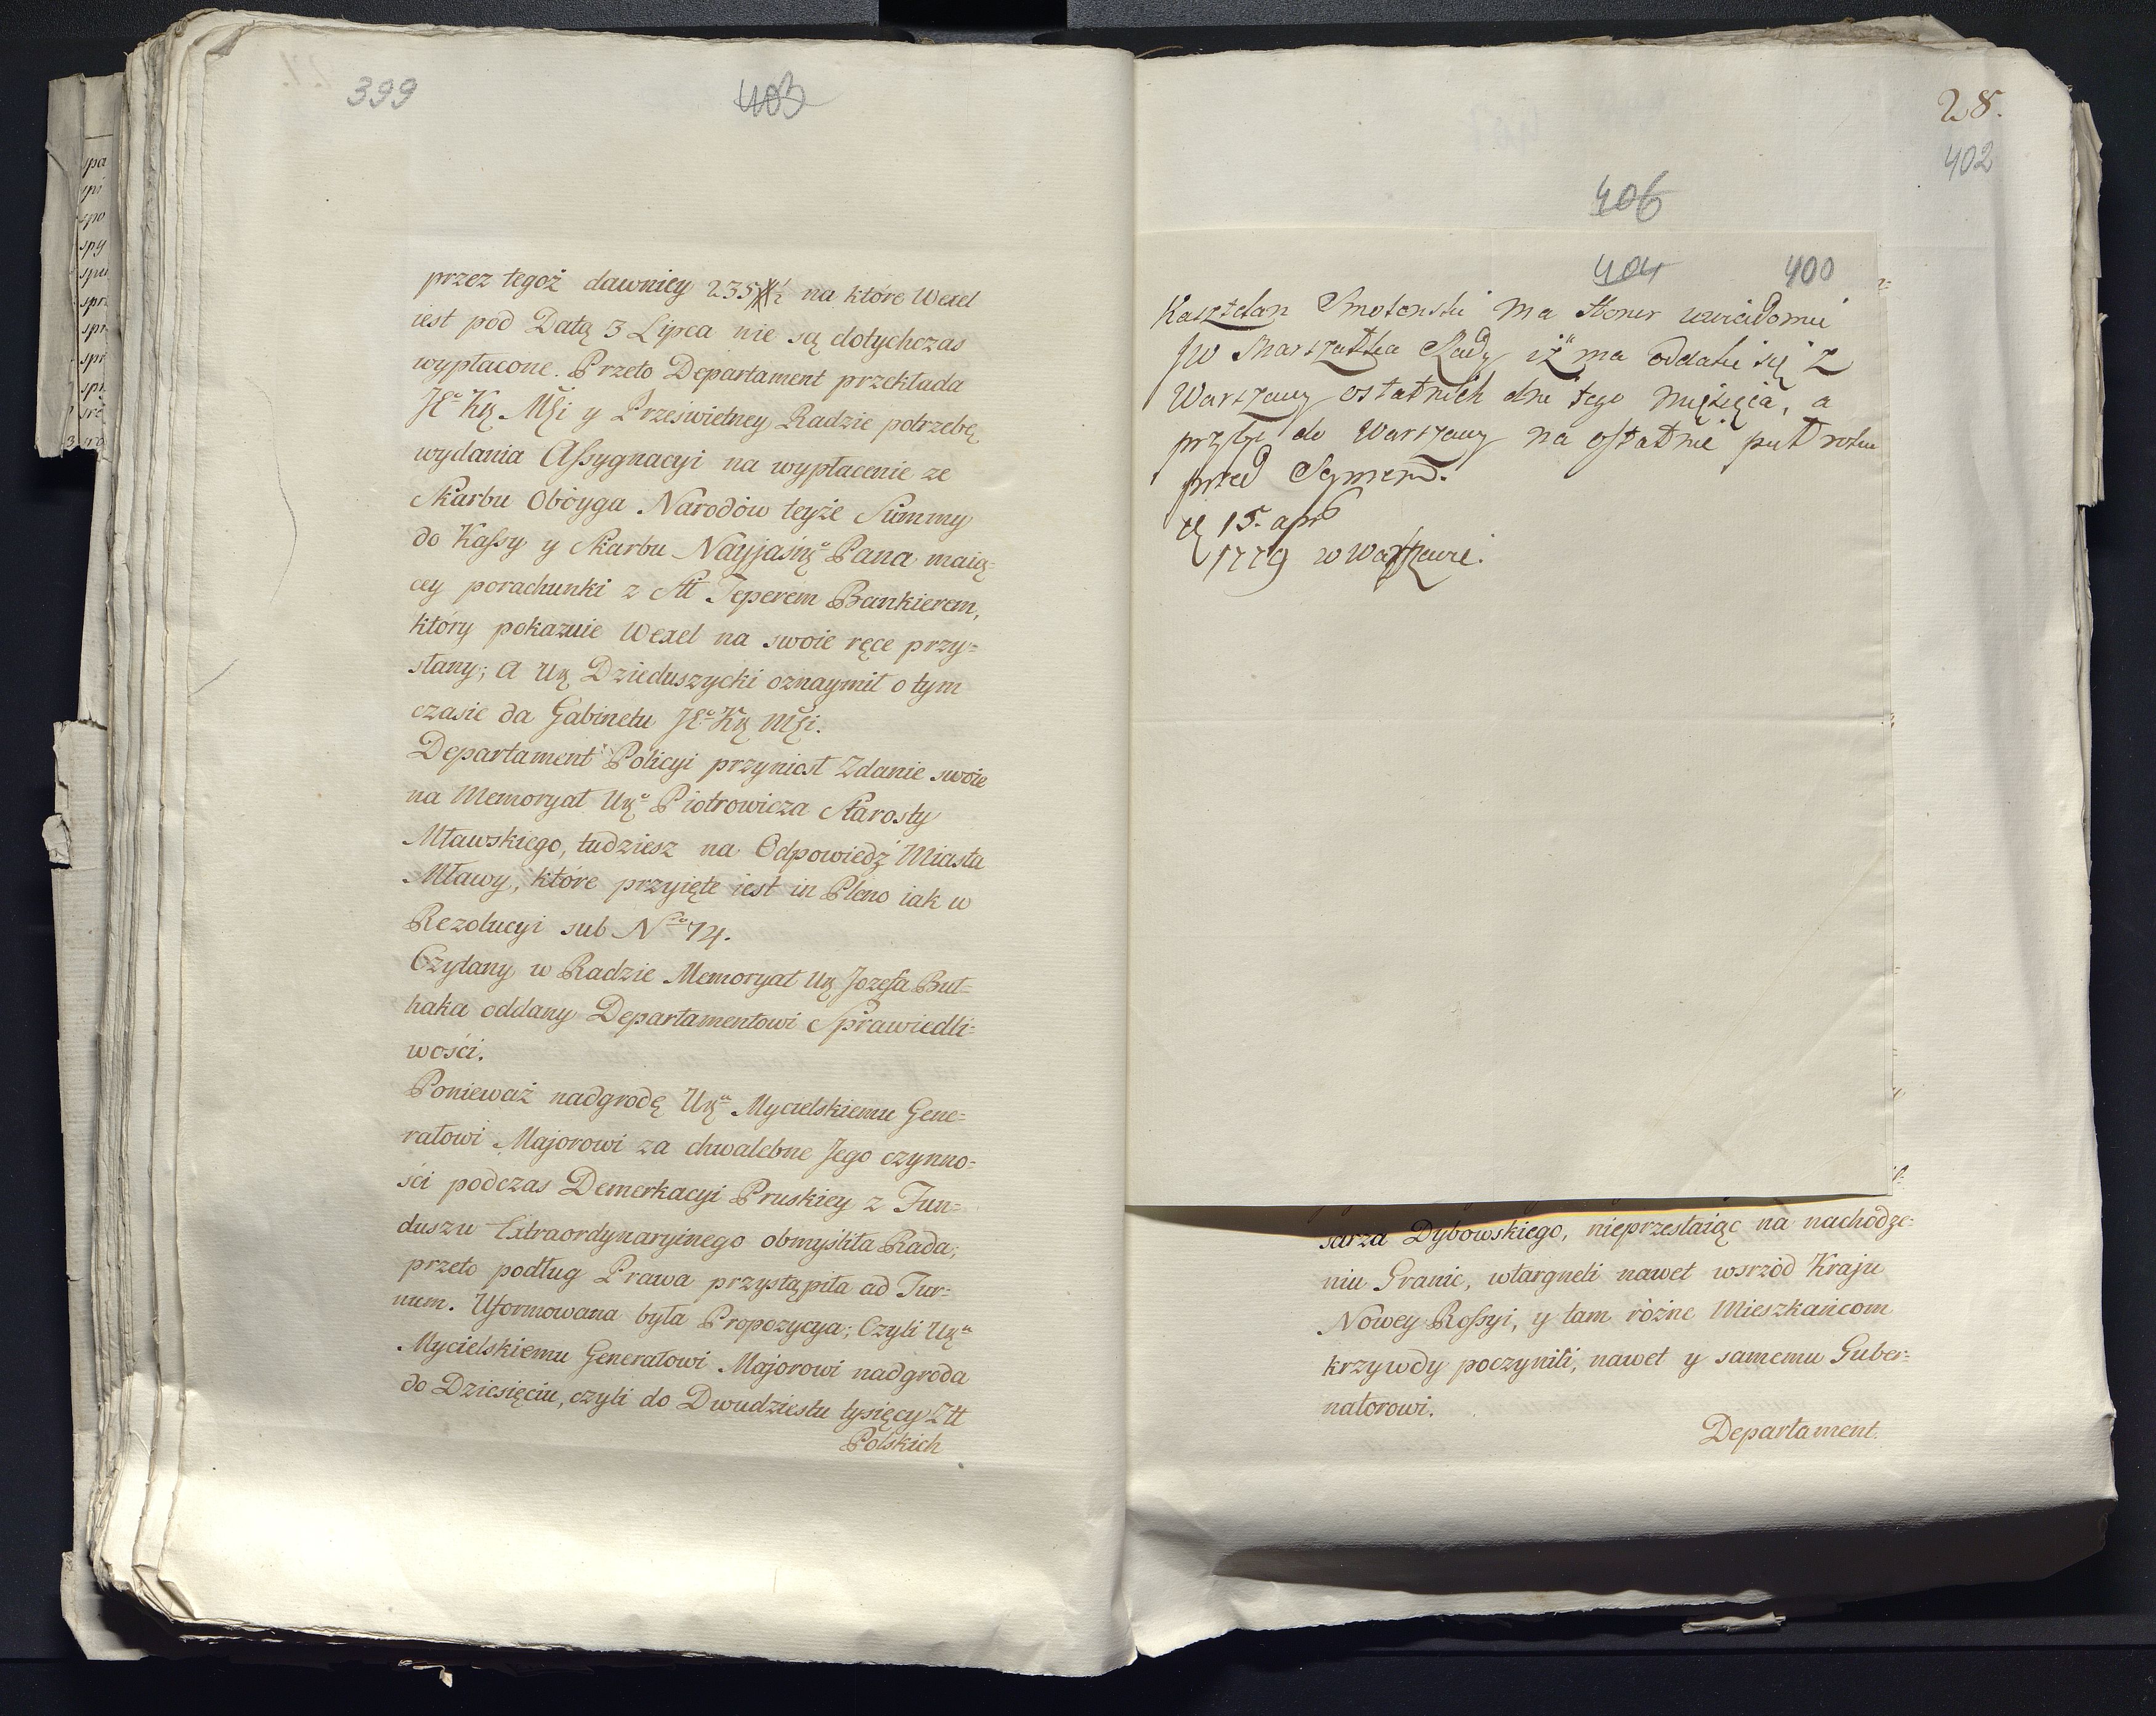 399
403
przez tegoż dawniey 235 1/2 na które Wexel
iest pod Datą 3 Lipca nie są dotychczas
wypłacone. Przeto Departament przekłada
JEº Kң Mści y Prześwietney Radzie potrzebę
wydania Assygnacyi na wypłacenie ze
Skarbu Obóyga Narodów teyże Summy
do Kassy y Skarbu Nayjaśnº Pana maią=
cey porachunki z Teperem Bankierem,
który pokazuie Wexel na swoie ręce przy=
słany; a Uң Dzieduszycki oznaymił o tym
czasie da Gabinetu JEº Kң Mści.
Departament Policyi przyniosł Zdanie swoie
na Memoryał Uңº Piotrowicza Starosty
Mławskiego, tudziesz na Odpowiedź Miasta
Mławy, które przyięte iest in Pleno iak w
Rezolucyi sub Nro 74.
Czytany w Radzie Memoryał Uң Jozefa Buł=
haka oddany Departamentowi Sprawiedli=
wości.
Ponieważ nadgrodę Uңu Mycielskiemu Gene=
rałowi Majorowi za chwalebne Jego czynno=
ści podczas Demerkacyi Pruskiey z Fun=
duszu Extraordynaryinego obmyśliła Rada;
przeto podług Prawa przystąpiła ad Tur=
num. Uformowana była Propozycya; Czyli Uңu
Mycielskiemu Generałowi Majorowi nadgroda
do Dziesięciu, czyli do Dwudziestu tysięcy Złł
Polskich
28.
402
406
404 400
Kasztelan Smolenski ma Honor uwiadomic
JW Marszałka Rady iż ma oddalic się z
Warszawy ostatnich dni tego miesięca, a
przybyc do Warszawy na ostatnie puł roku
przed Seymem.
15. apr
1779 w Warszawie.
sarza Dybowskiego, nieprzestaiąc na nachodze=
niu Granic, wtargneli nawet wsrzód Kraju
Nowey Rossyi, y tam różne Mieszkańcom
krzywdy poczynili, nawet y samemu Guber=
natorowi.
Departament.